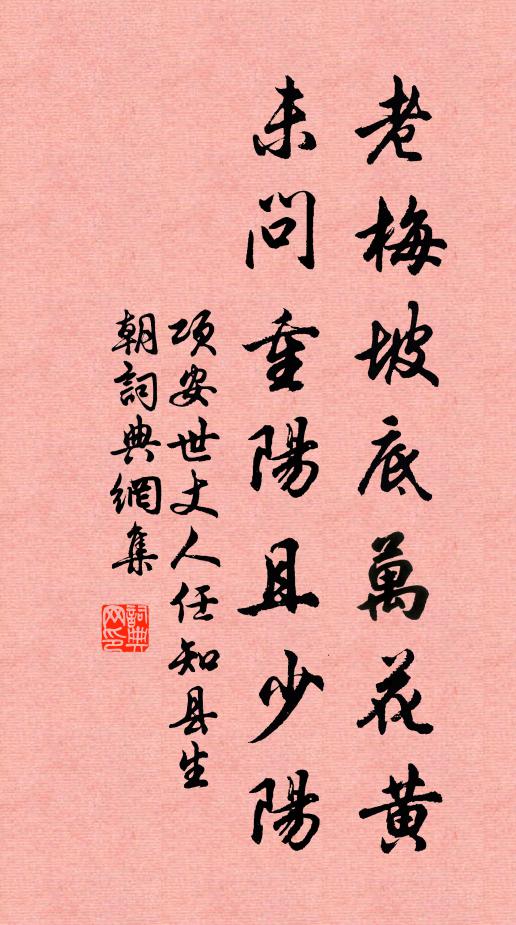 老梅坡底萬花黃
未問重陽且少陽
項安世丈人任知县生
朝詞典網集
詞典
网印